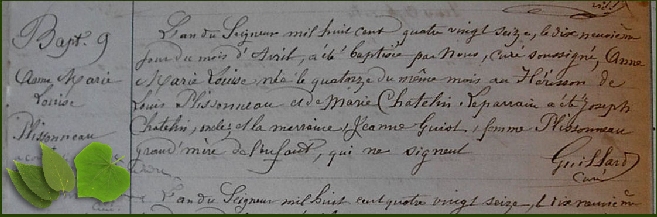 Bapt. 9
Anne Marie
Louise
Plissonneau
L'an du Seigneur mil huit cent quatre vingt seize, le dix neuvième
jour du mois d'Avril, a été baptisée par Nous, curé soussigné, Anne
Marie Louise, née le quatorze du même mois au Hérisson de
Louis Plissonneau et de Marie Chatelin. Le parrain a été Joseph
Chatelin, et la marraine, Jeanne Guiot, femme Plissonneau
grand'mère de l'enfant, qui ne signent
Guillard
Curé
L'an du Seigneur mil huit cent quatre vingt seize, le dix neuvième